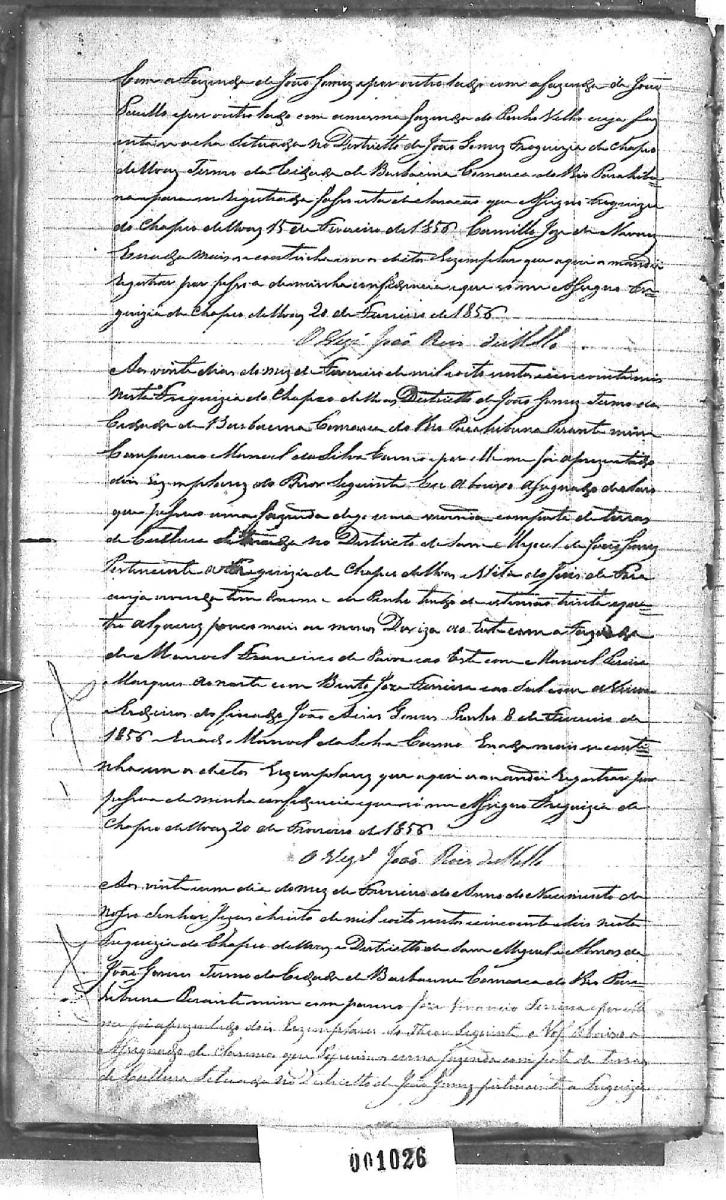 Com a Fazenda de João Gomes e por outro lado com a fazenda de João
e por outro lado com a mesma fazenda do Pinho Velho cuja faz
acha Situada no Districtto de João Gomes Freguizia de Chapeo
de Uvas Termo da Cidade de Barbacena Comarca do Rio Parahibu
na para ser Registrada fasso esta declaração que Assigno Freguizia
do Chapeo de Uvas 15 de Fevereiro de 1856 Camillo Joze de
E nada mais se continha em o dictos Exemplar que aqui o mandei
Registrar por pessoa de minha confidencia e que só me Assigno Fre=
guizia de Chapeo de Uvas 20 de Fevereiro de 1856
O Vigº João Reis de Mello
Aos vinte dias do mez de Fevereiro de mil oito centos e cincoenta e seis
nesta Freguizia de Chapeo de Uvas Districtto de João Gomes Termo da
Cidade de Barbacena Comarca do Rio Parahibuna Perante mim
Compareceo Manoel da Silva e por Elle me foi aprezentado
dois Exemplares do Theor Seguinte Eu Abaixo Assignado declaro
que possuo uma fazenda de minha morada composta de terras
de Cultura Situada no Districto de Sam Miguel de João Gomes
Pertencente a Freguizia de Chapeo de Uvas
cuja tem o nome de Pinho tendo de extensão trinta e qua
tro alqueires pouco mais ou menos Diviza ao com a Fazenda
de Manoel Francisco de Paiva ao Est com Manoel Pereira
Marques do norte com Bento Joze Ferreira e ao Sul com a Viuva
e Erdeiros do finado João Gomes Pinho 8 de Fevereiro de
1856 Manoel da Silva E nada mais se conti=
nha em o dictos Exemplares que aqui o mandei Registrar por
pessoa de minha confidencia e que só me Assigno Freguizia de
Chapeo de Uvas 20 de Fevereiro de 1856
O Vigº João Reis de Mello
Aos vinte um dia do mez de Fevereiro do Anno do Nacimento de
nosso Senhor Jezus christo de mil oito centos e cincoenta e seis nesta
Freguizia de Chapeo de Uvas e Districtto de Sam Miguel e Almas de
João Gomes Termo da Cidade de Barbacena Comarca do Rio Para
hibuna Perante mim compareceo Joze Ferreira e por elle
me foi aprezentado dois Exemplares do Theor Seguinte o abaixo
Assignado declaramos que Possuimos uma fazenda composta de terras
de Cultura Situada no Districtto de João Gomes pertencente a Freguizia
001026